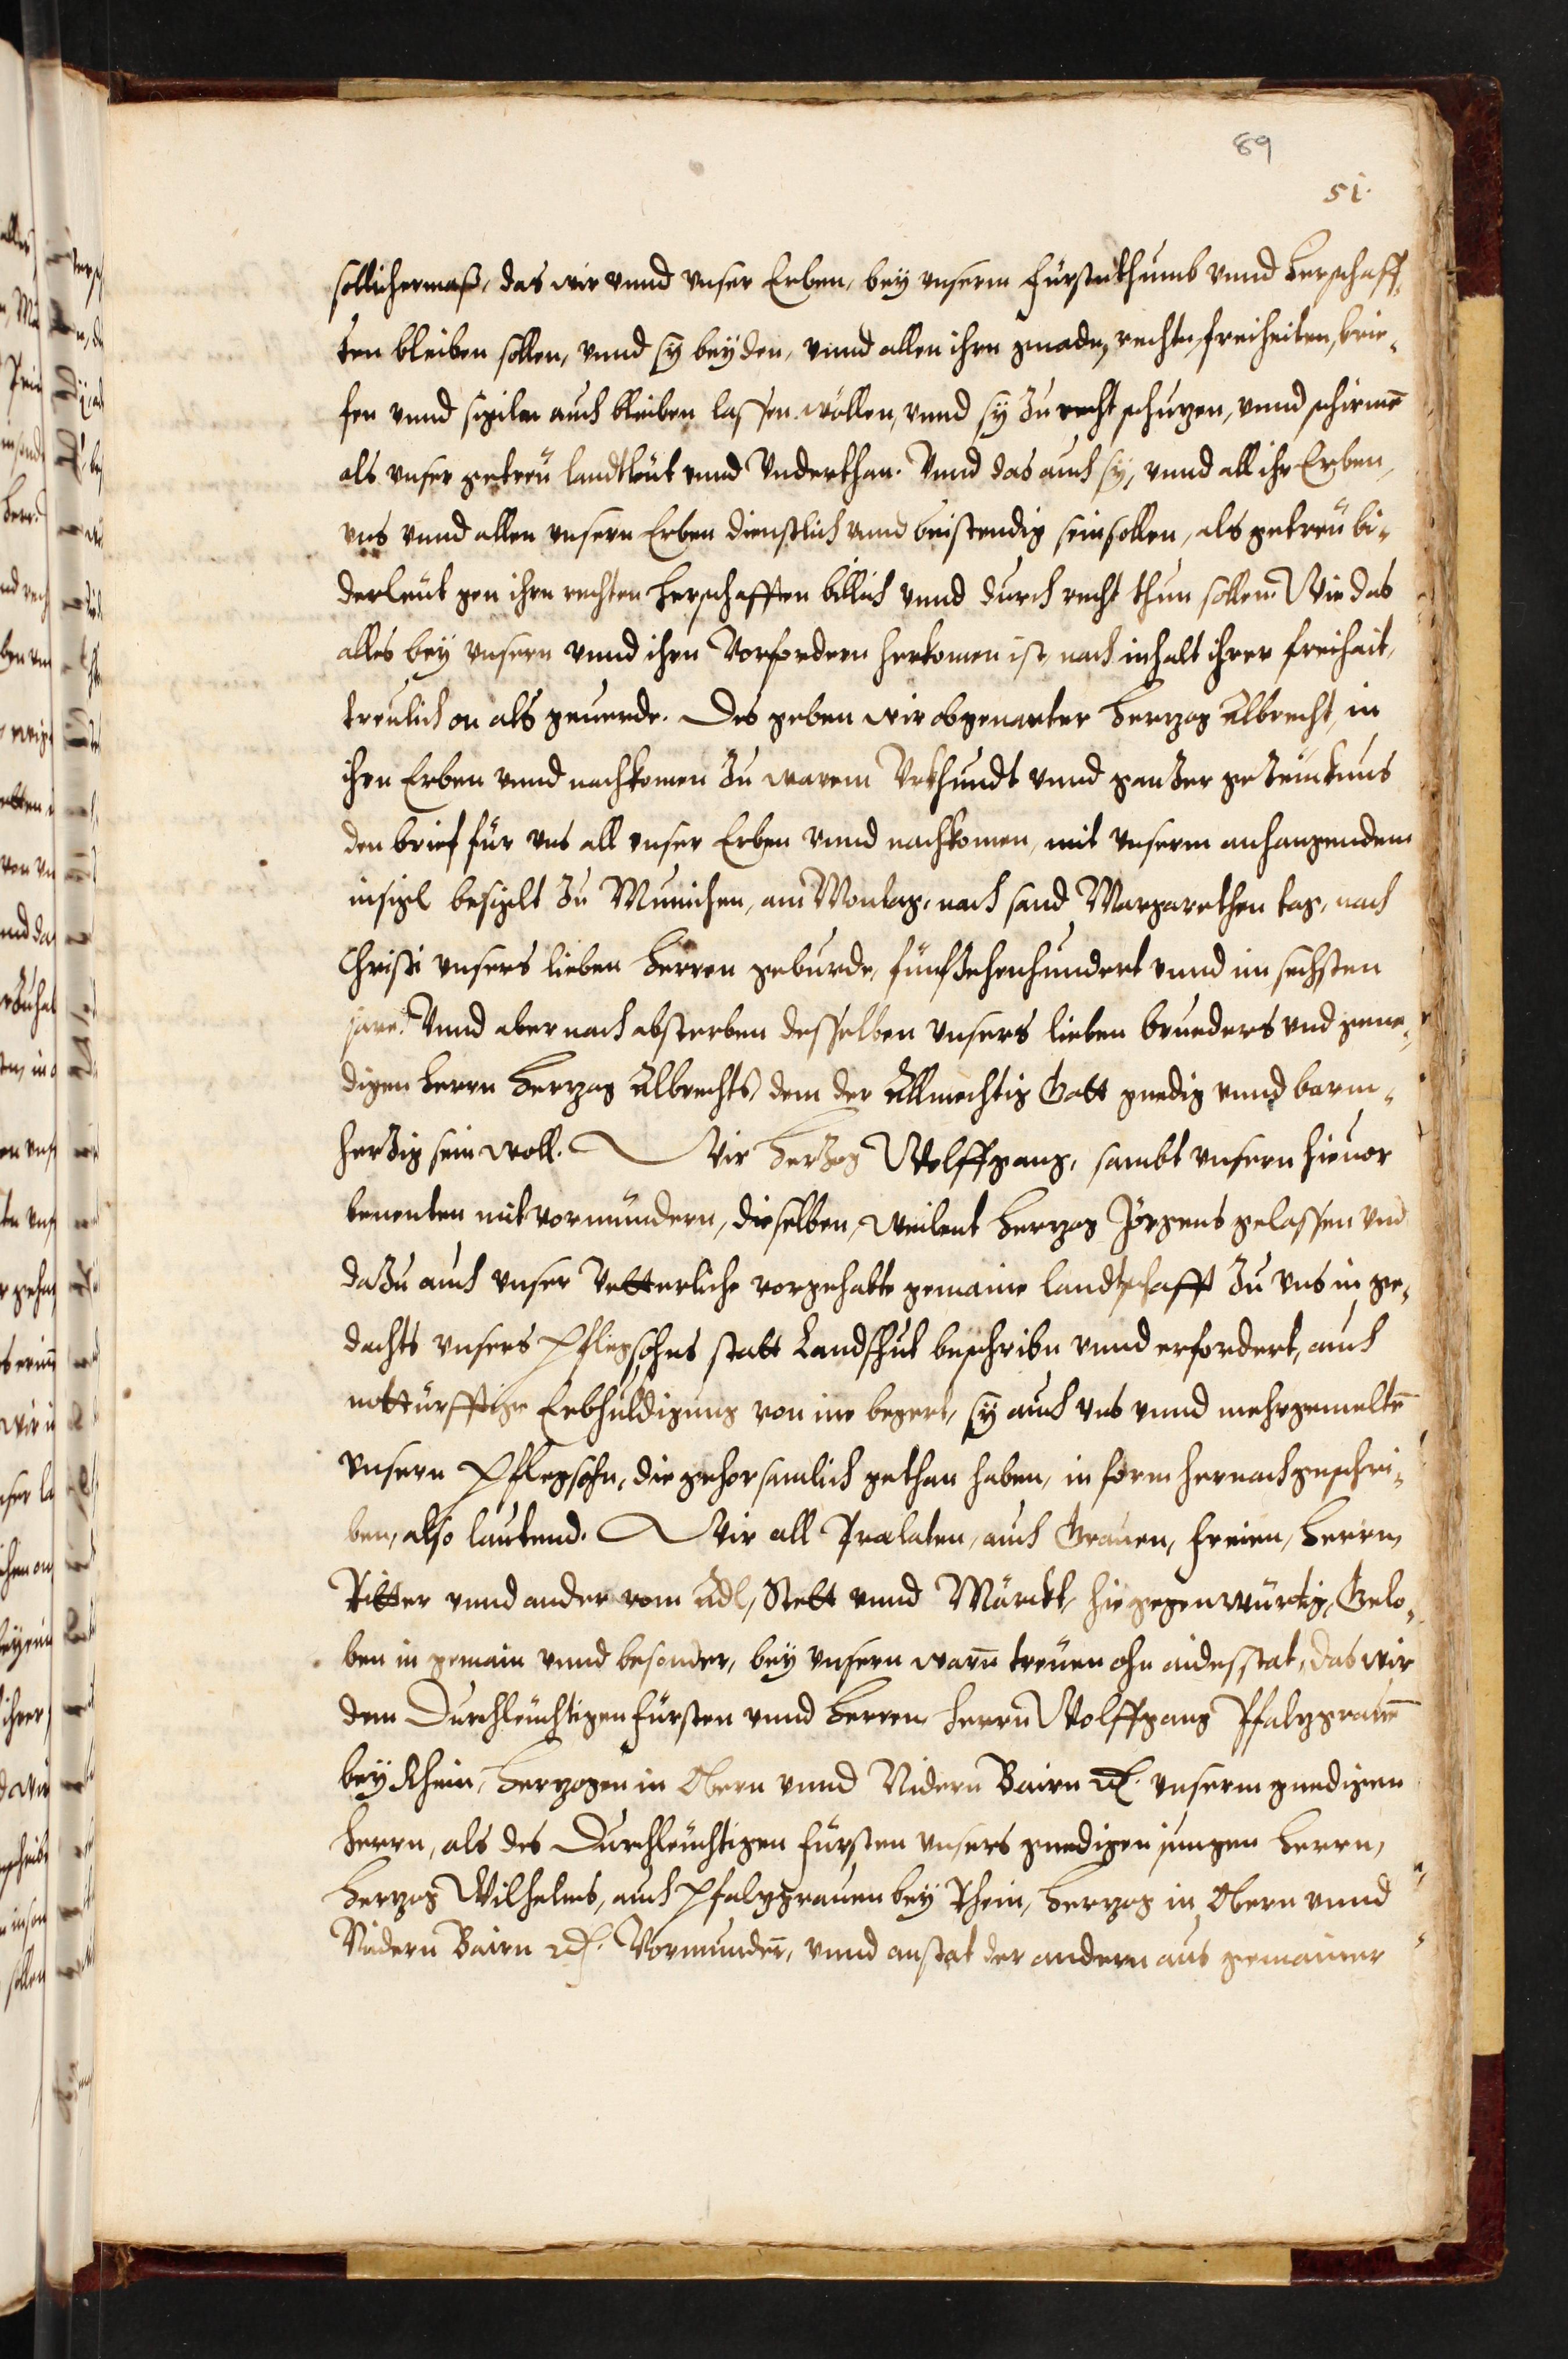 89
51.
sollichermaß, das wir vnnd vnser Erben, bey vnserm Fürstnthumb vnnd Herschaff„
ten bleiben sollen, vnnd sy bey den, vnnd allen ihrn gnadn, rechtn, freiheiten, brie„
fen vnnd sigiln auch bleiben lassen wöllen, vnnd sy zu recht schuzen, vnnd schirmē
als vnser getreu landtleut vnnd Vnderthan. Vnnd das auch sy, vnnd all ihr Erben,
vns vnnd allen vnsern Erben dienstlich vnnd beistendig sein sollen, als getreu bi„
derleut gen ihrn rechten Herschafften billich vnnd durch recht thun sollen. Wie das
alles bey vnsern vnnd ihrn Vorfordern herkomen ist, nach inhalt ihrer freihait,
treulich on als geuerde. Des geben wir obgenanter Herzog Albrecht, in
ihrn Erben vnnd nachkomen zu warem Vrkhundt vnnd ganzer gezeucknus
den brief für vns all vnser Erben vnnd nachkomen, mit vnserm anhangendem
insigl besiglt zu Munichen, am Montag, nach sand Margarethen tag, nach
Christi vnsers lieben Herren geburde, fünfzehenhundert vnnd im sechsten
jare. Vnnd aber nach absterben desselben vnsers lieben brueders vnd gene„
digen Herrn Herzog Albrechts, dem der Allmechtig Gott gnedig vnnd barm„
herzig sein woll. Wir Herzog Wolffgang, sambt vnsern hieuor
benenten mitvormündern, dieselben, weilent Herzog Jörgens gelassen vnd
dazu auch vnser Vetterliche vorgehabte gemaine landtschafft zu vns in ge„
dachts vnsers Pflegsohns statt Landshut beschribn vnnd erfordert, auch
nottürfftige Erbhuldigung von inn begert, sy auch vns vnnd mehrgemeltē
vnsern Pflegsohn, die gehorsamlich gethan haben, in form hernachgeschri„
ben, also lautend. Wir all Prælaten, auch Grauen, Freien, Herrn,
Ritter vnnd ander vom Adl, Stett vnnd Märckt, hie gegenwürtig, Gelo„
ben in gemain vnnd besonder, bey vnsern warn̄ treuen ohn aidesstat, das wir
dem Durchleuchtigen Fürsten vnnd Herren Herrn Wolffgang Pfalzgrauē
bey Rhein, Herzogen in Obern vnnd Nidern Bairn ꝛc. vnserm gnedigen
Herrn, als des Durchleuchtigen Fürsten vnsers gnedigen jungen Herrn,
Herzog Wilhelms, auch Pfalzgrauen bey Rhein, Herzog in Obern vnnd
Nidern Bairn ꝛc. Vormunder̄, vnnd anstat der andern aus gemainer